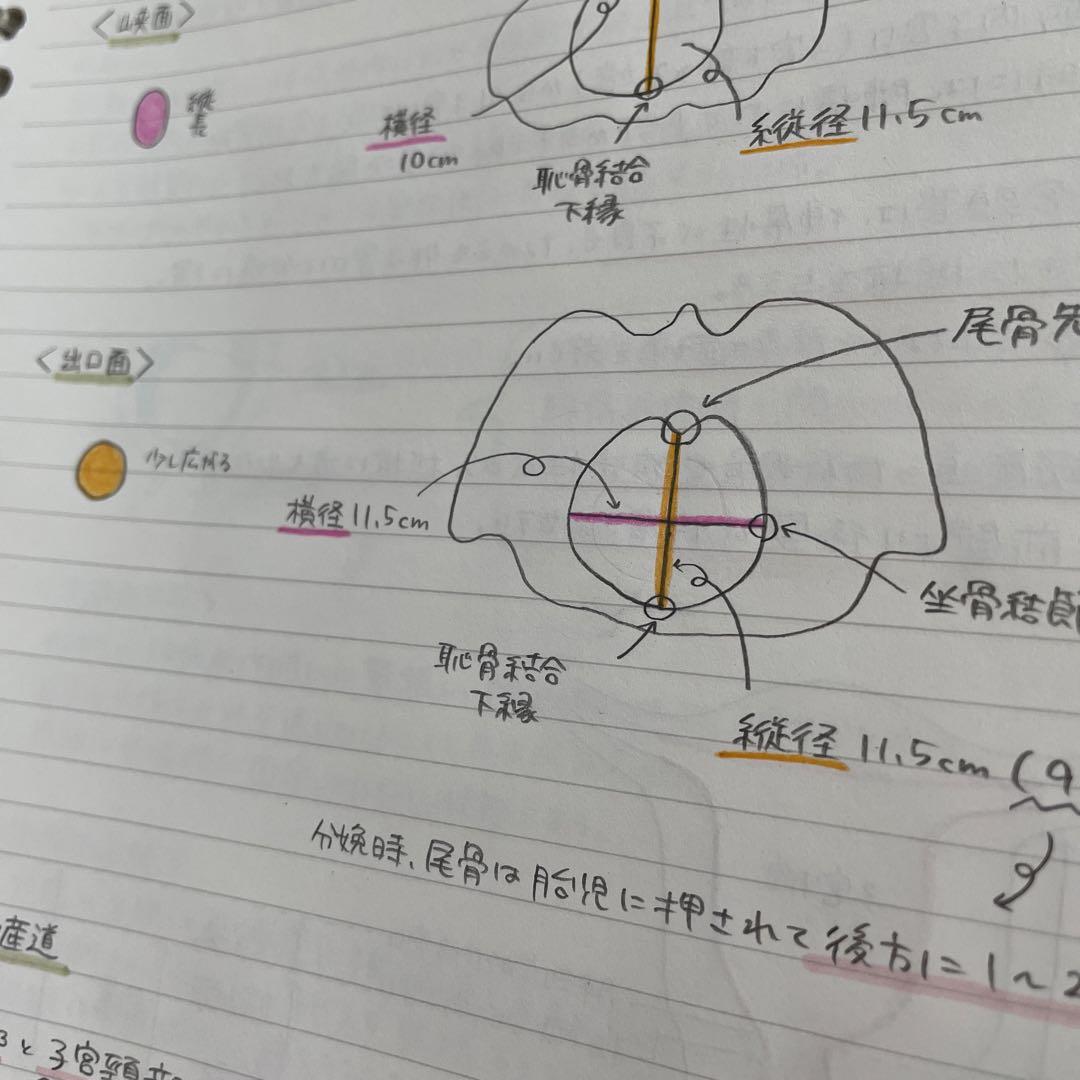 〈峡面〉
縦長
横径
10cm
縦径 11.5cm
恥骨結合
下縁
尾骨先
〈出口面〉
少し広がる
横径 11.5cm
坐骨結節
恥骨結合
下縁
縦径 11.5cm (9
分娩時、尾骨は胎児に押されて後方に1〜2
産道
と子宮頸